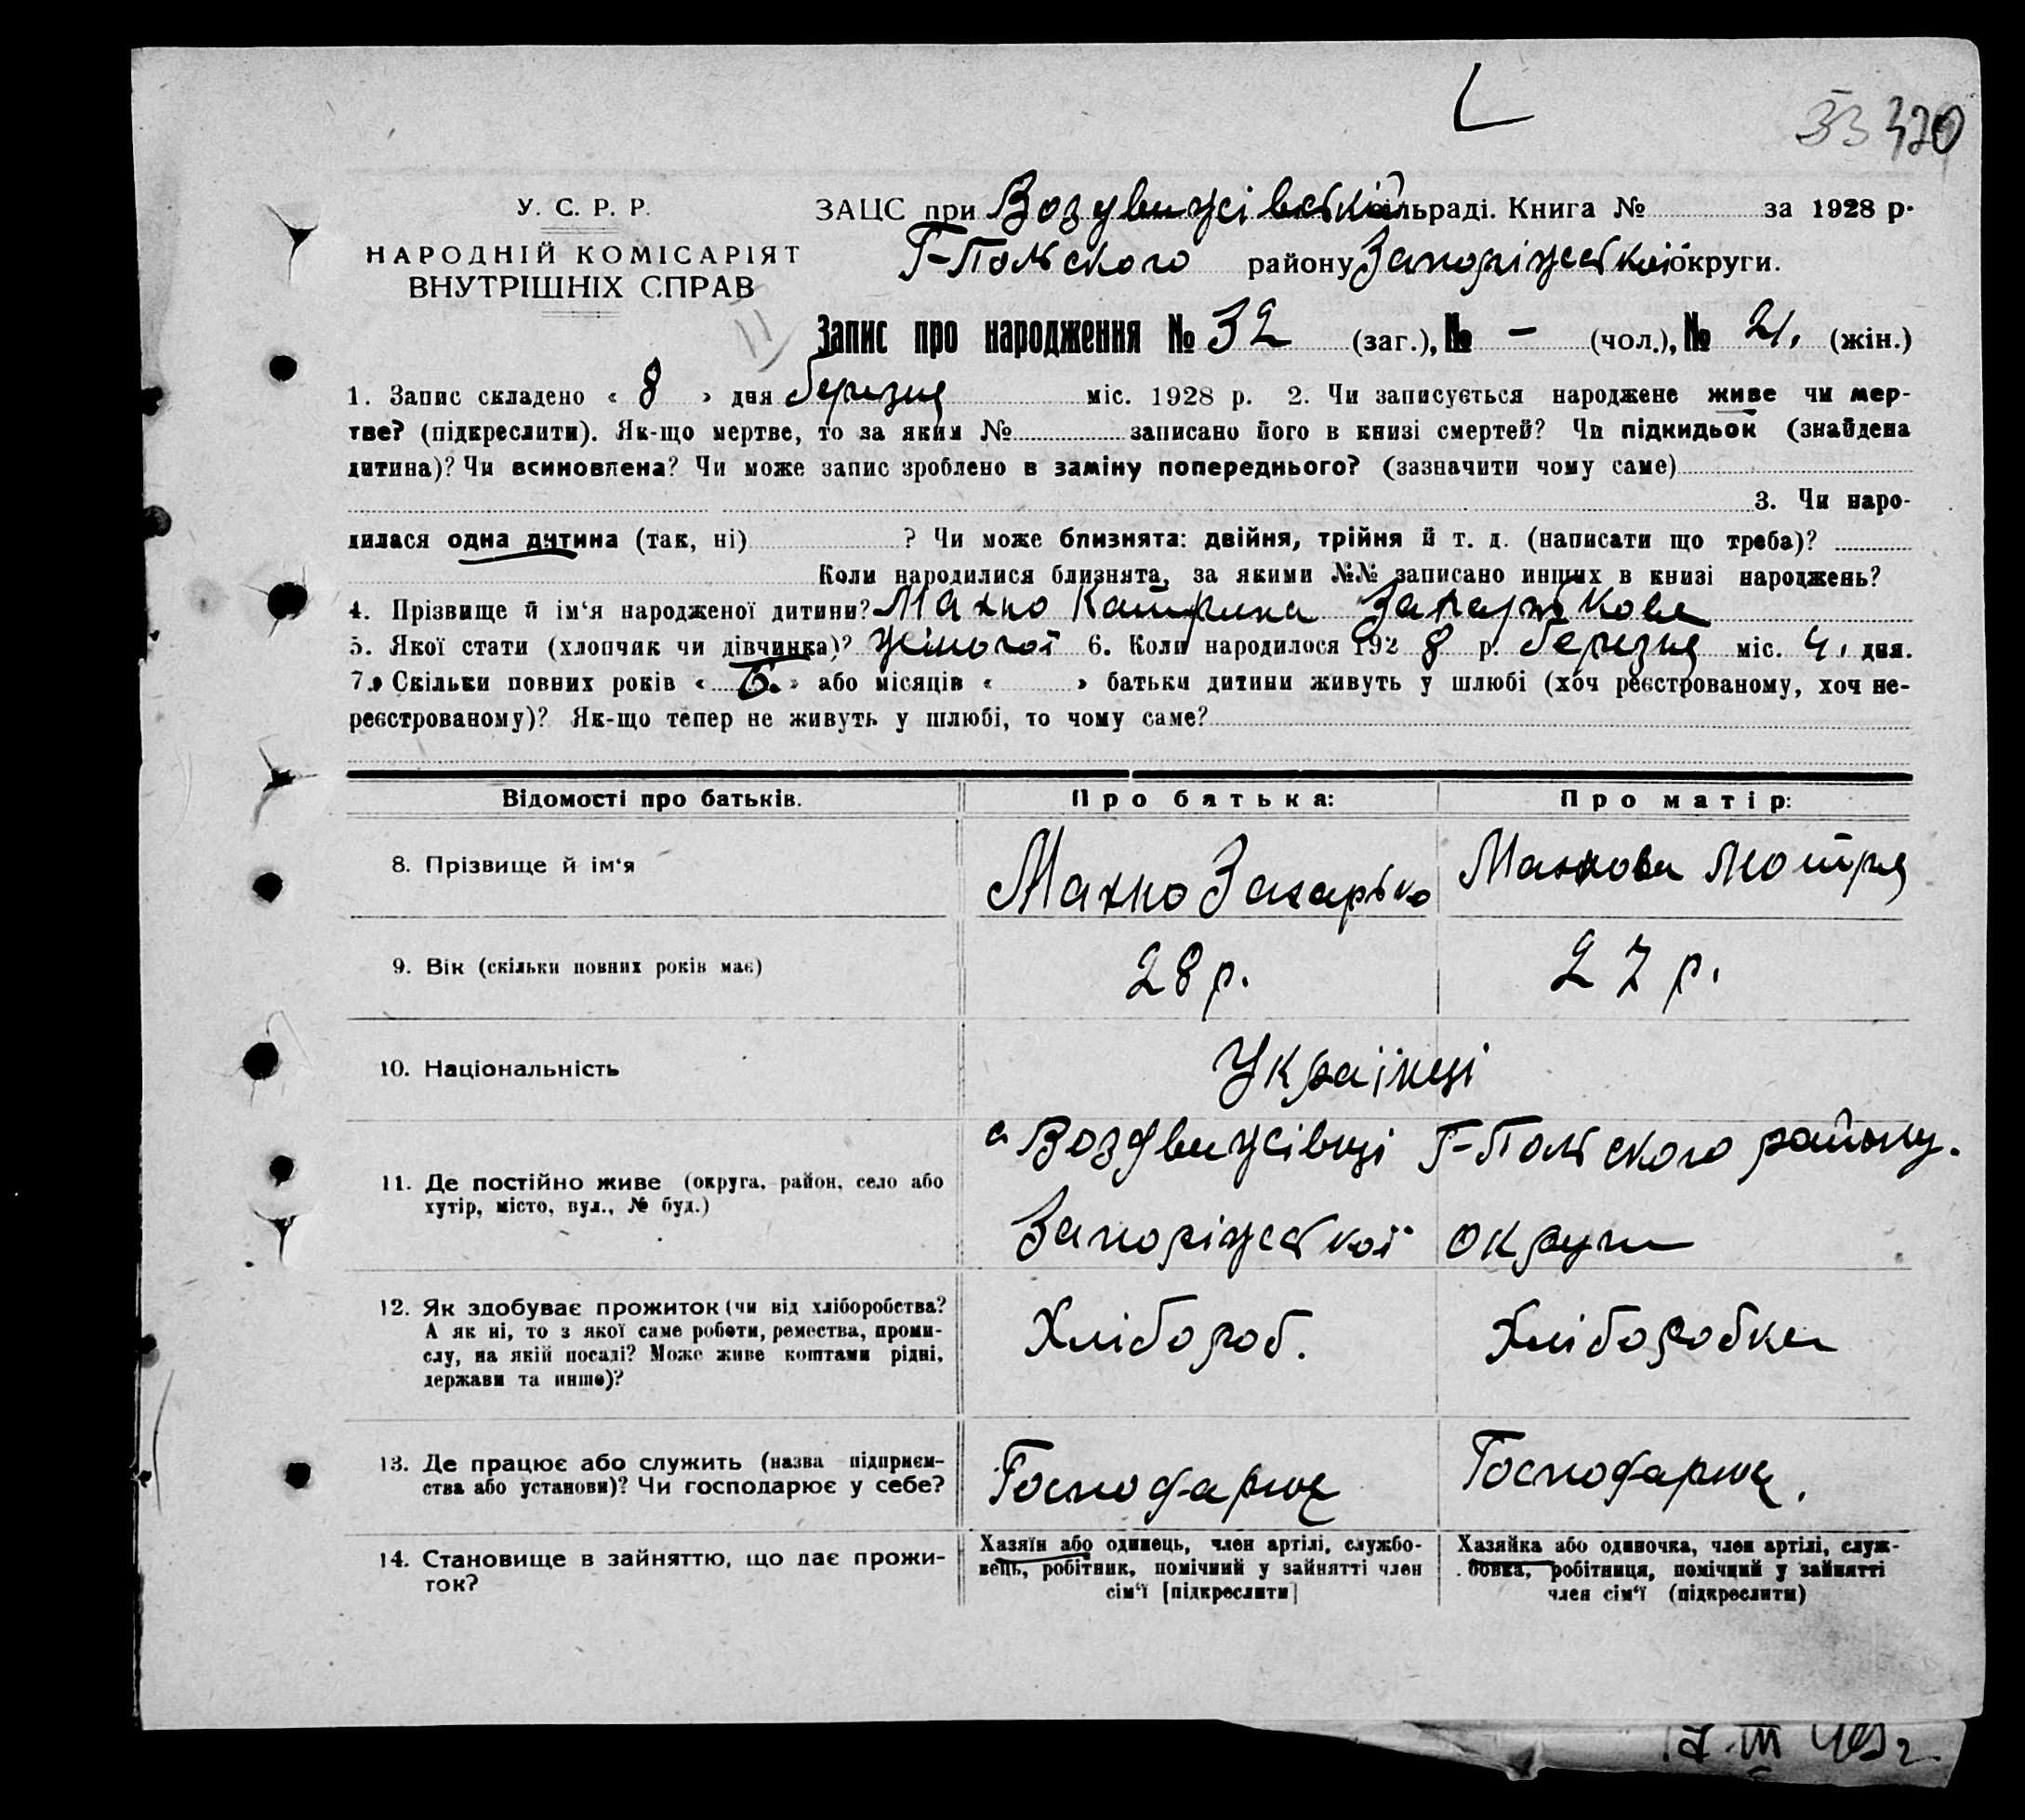 33 320
У. С. Р. Р.
НАРОДНІЙ КОМІСАРІЯТ
ВНУТРІШНІХ СПРАВ
ЗАЦС при Воздвижівській сільраді. Книга № за 1928 р.
Г-Польского району Запоріжської округи.
Запис про народження № 32 (заг.), № - (чол.), № 21. (жін.)
1. Запис складено « 8 » дня березня міс. 1928 р. 2. Чи записується народжене живе чи мер-
тве? (підкреслити). Як-що мертве, то за яким № записано його в книзі смертей? Чи підкидьок (знайдена
дитина)? Чи всиновлена? Чи може запис зроблено в заміну попереднього? (зазначити чому саме)
3. Чи наро-
дилася одна дитина (так, ні) ? Чи може близнята: двійня, трійня й т. д. (написати що треба)?
Коли народилися близнята, за якими №№ записано инших в книзі народжень?
4. Прізвище й ім‘я народженої дитини? Махно Катерина Захарькова
5. Якої стати (хлопчик чи дівчинка)? жіночої 6. Коли народилося 1928 р. березня міс. 4. дня.
7. Скільки повних років « 6. » або місяців « » батьки дитини живуть у шлюбі (хоч реєстрованому, хоч не-
реєстрованому)? Як-що тепер не живуть у шлюбі, то чому саме?
Відомості про батьків. Про батька: Про матір:
8. Прізвище й ім‘я Махно Захарько Махнова Мотря
9. Вік (скільки повних років має) 28 р. 27 р.
10. Національність Українці
11. Де постійно живе (округа, район, село або
хутір, місто, вул., № буд.)
с Воздвижівці Г-Польского району.
Запоріжської округи
12. Як здобуває прожиток (чи від хліборобства?
А як ні, то з якої саме роботи, ремества, проми-
слу, на якій посаді? Може живе коштами рідні,
держави та инше)?
Хлібороб. Хліборобка
13. Де працює або служить (назва підприєм-
ства або установи)? Чи господарює у себе?
Господарює Господарює.
14. Становище в зайняттю, що дає прожи-
ток?
Хазяїн або одинець, член артілі, службо-
вець, робітник, помічний у зайнятті член
сім‘ї [підкреслити]
Хазяйка або одиночка, член артілі, служ-
бовка, робітниця, помічний у зайнятті
член сім‘ї (підкреслити)